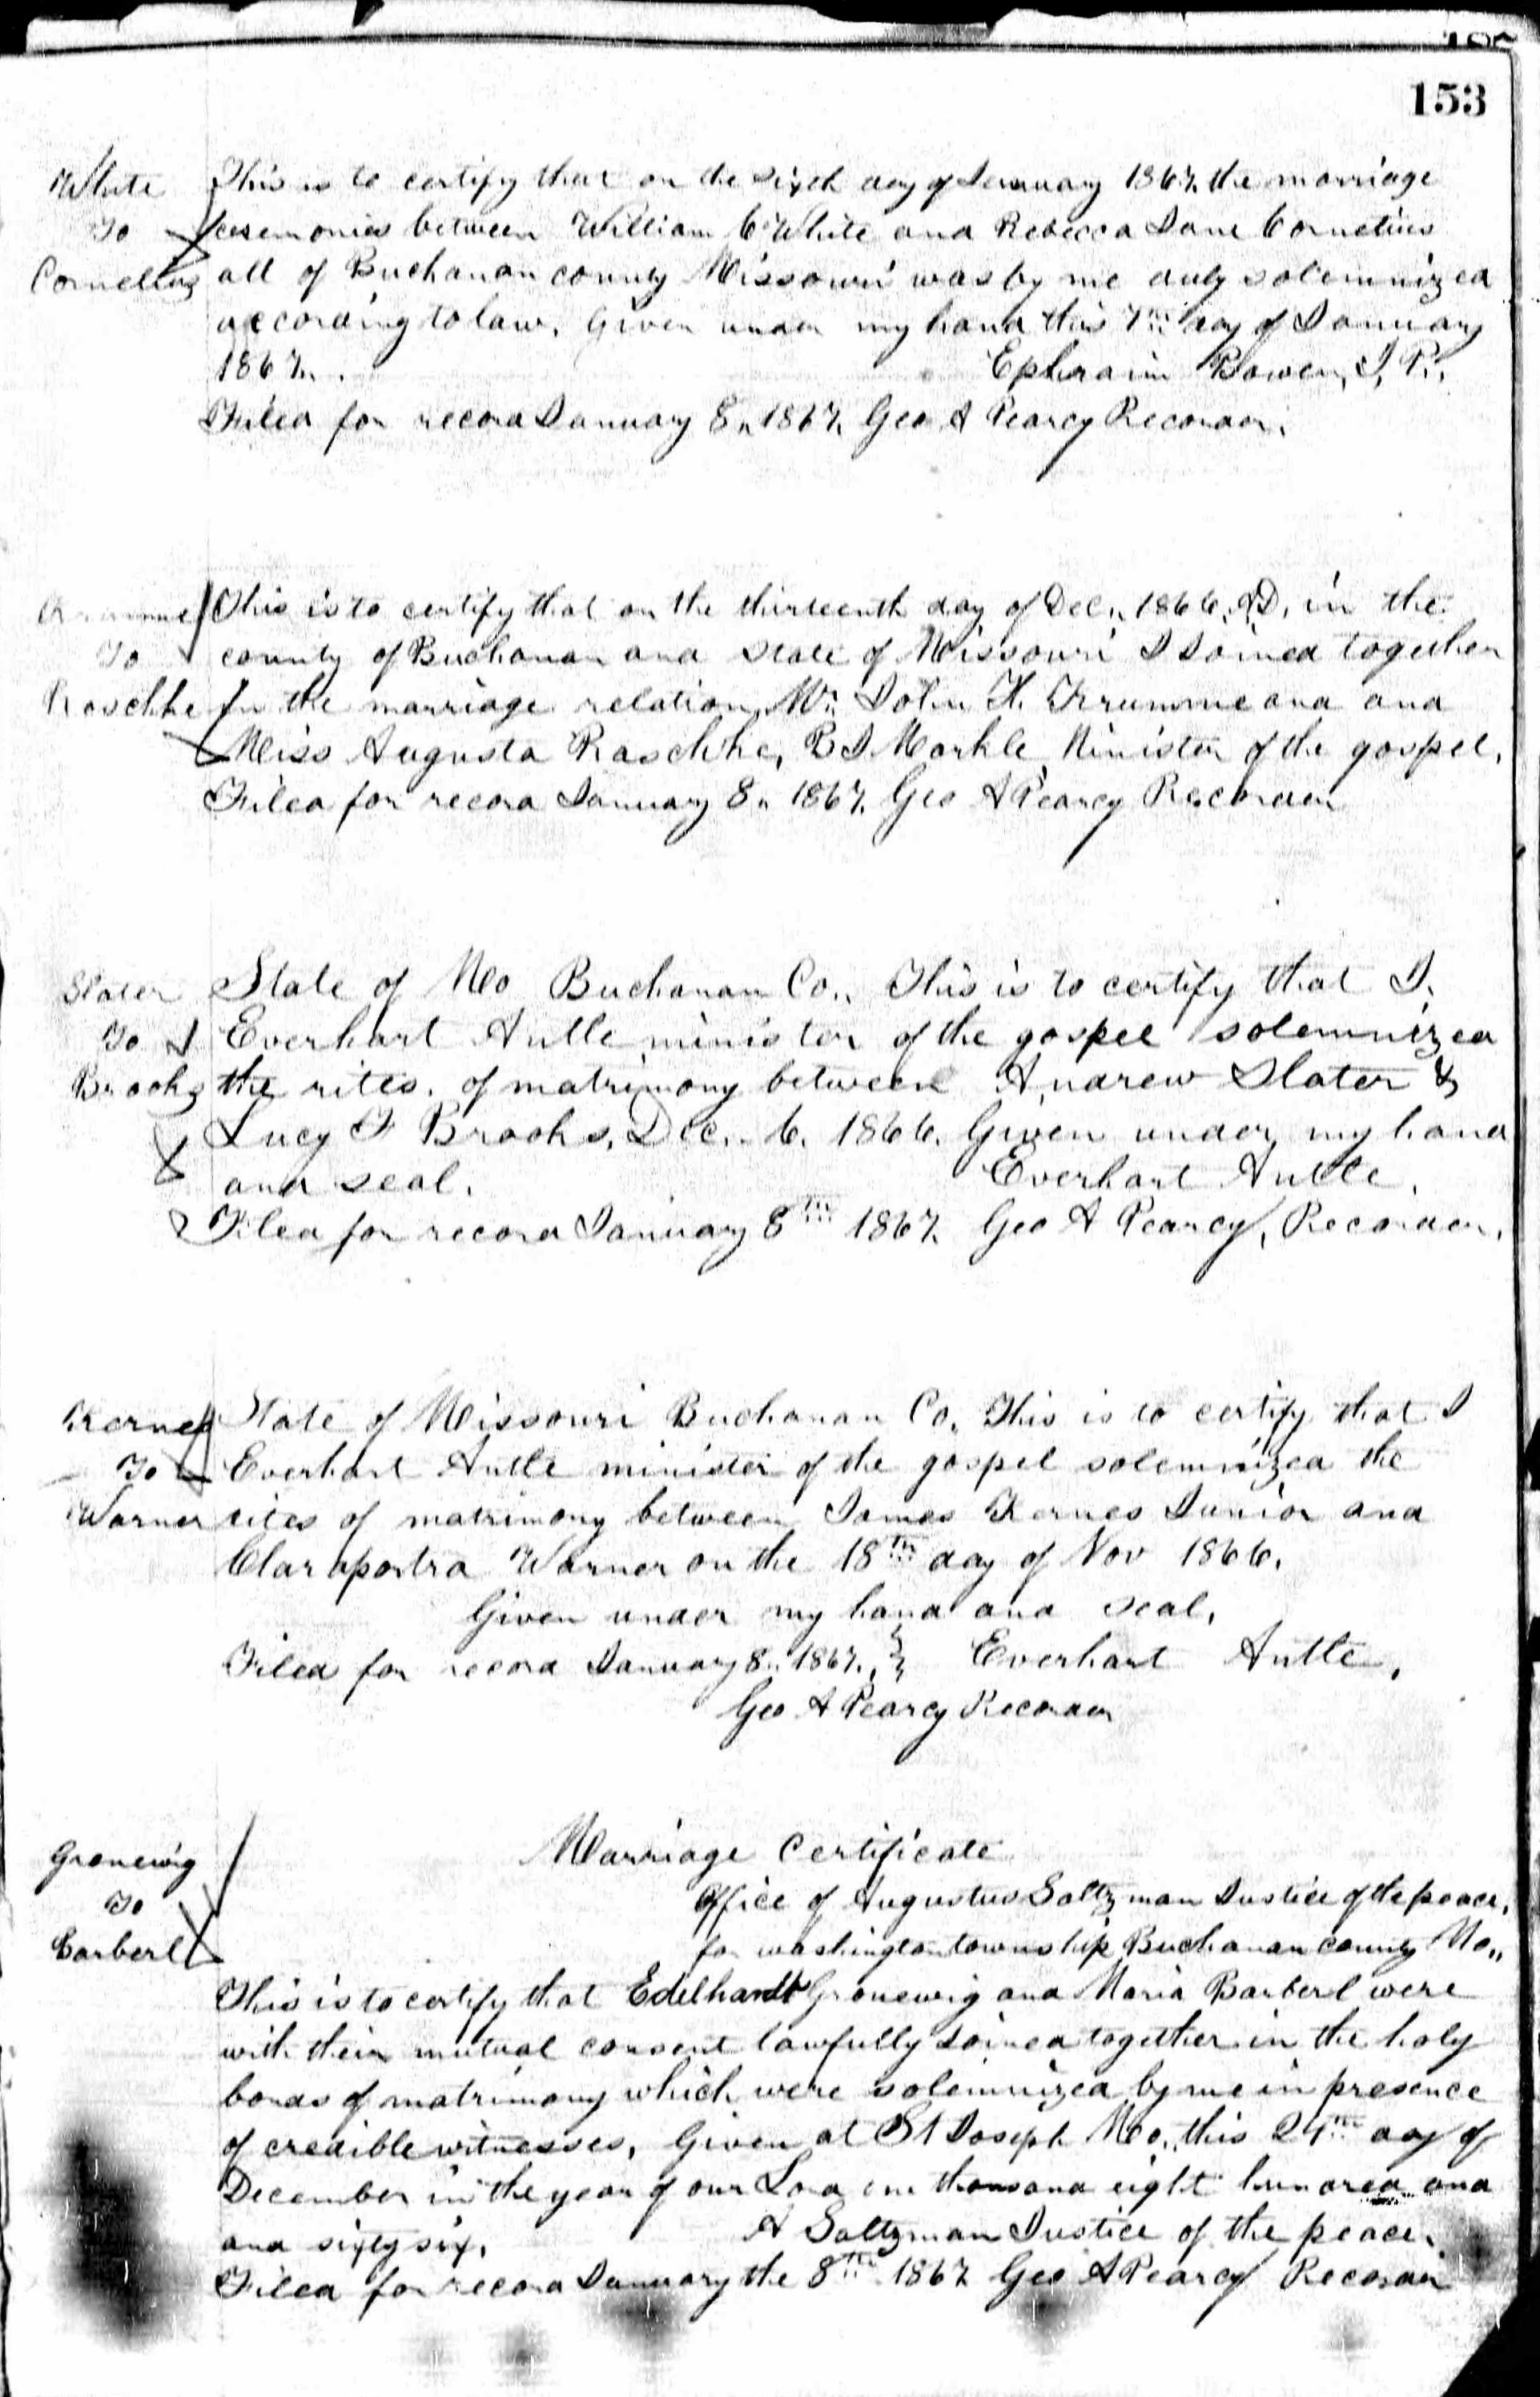 153
White
To
Cornelius
This is to certify that on the sixth day of January 1867. the marriage
ceremonies between William C White and Rebecca Jane Cornelius
all of Buchanan county Missouri was by me duly solemnized
according to law. Given under my hand this 7th day of January
1867. Ephraim Bowen, J. P.
Filed for record January 8. 1867. Geo A Pearcy Recorder.
To
Raschke
This is to certify that on the thirteenth day of Dec. 1866. A.D. in the
county of Buchanan and state of Missouri I Joined together
In the marriage relation Mr. John H. Krumme and and
Miss Augusta Raschke, B J Markle Minister of the gospel.
Filed for record January 8. 1867. Geo A Pearcy Recorder
Slater
To
Brooks
State of Mo Buchanan Co. This is to certify that I.
Everhart Antle minister of the gospel solemnized
the rites. of matrimony between Andrew Slater &
Lucy F Brooks, Dec. 6. 1866. Given under my hand
and seal. Everhart Antle.
Filed for record January 8th 1867. Geo A Pearcy, Recorder.
Kernes
To
Warner
State of Missouri Buchanan Co. This is to certify that I
Everhart Antle minister of the gospel solemnized the
rites of matrimony between James Kernes Junior and
Warner on the 18th day of Nov 1866.
Given under my hand and seal.
Filed for record January 8. 1867. Everhart Antle.
Geo A Pearcy Recorder
Gronewig
To
Barberl
Marriage Certificate
Office of Augustus Saltzman Justice of the peace.
for washington township Buchanan county Mo.
This is to certify that Edelhardt Gronewig and Maria Barberl were
with their mutual consent lawfully Joined together in the holy
bonds of matrimony which were solemnized by me in presence
of credible witnesses. Given at St Joseph Mo. this 24th day of
December in the year of our Lord one thousand eight hundred and
and sixty six. A Saltzman Justice of the peace.
Filed for record January the 8th 1867 Geo A Pearcy Recorder